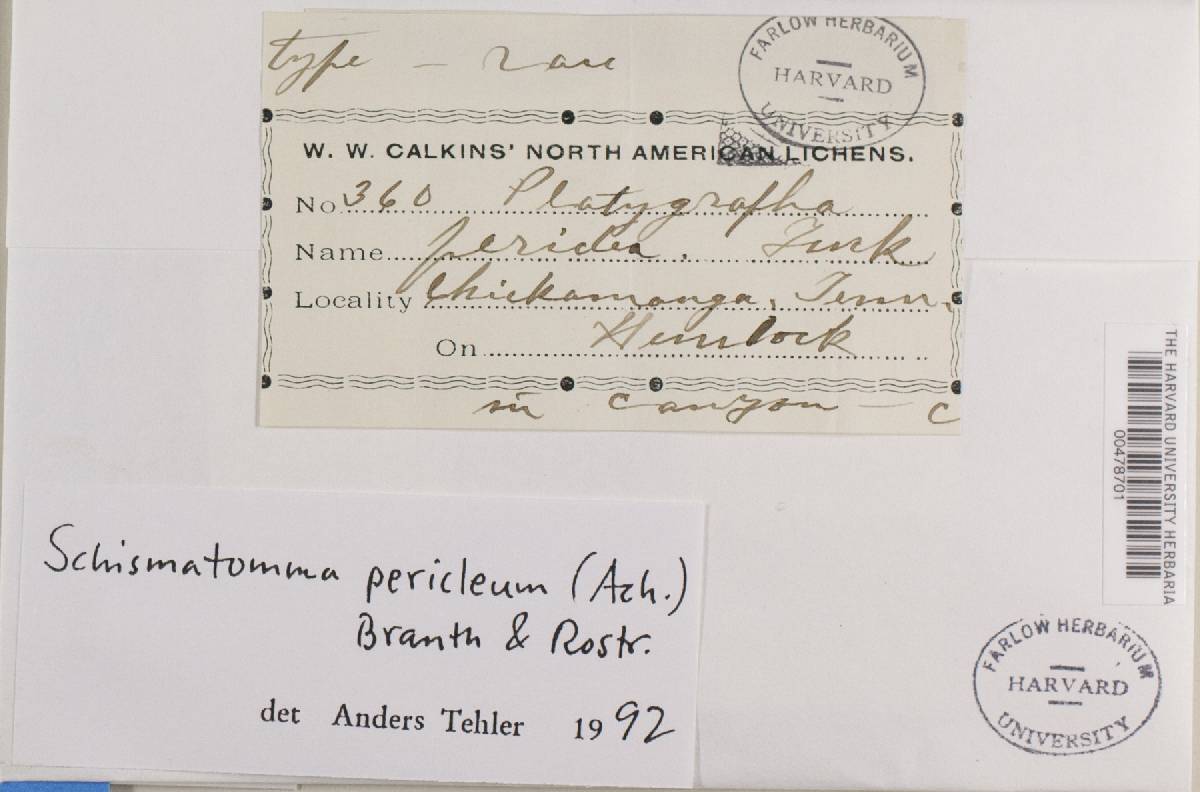 type - rare
FARLOW HERBARIUM
HARVARD
UNIVERSITY
W. W. CALKINS' NORTH AMERICAN LICHENS.
No. 360 Platygrapha
Name periclea. Tuck
Locality Chickamauga, Tenn.
On Hemlock
in canyon - C
THE HARVARD UNIVERSITY HERBARIA
00478701
Schismatomma pericleum (Ach.)
Branth & Rostr.
det Anders Tehler 1992
FARLOW HERBARIUM
HARVARD
UNIVERSITY